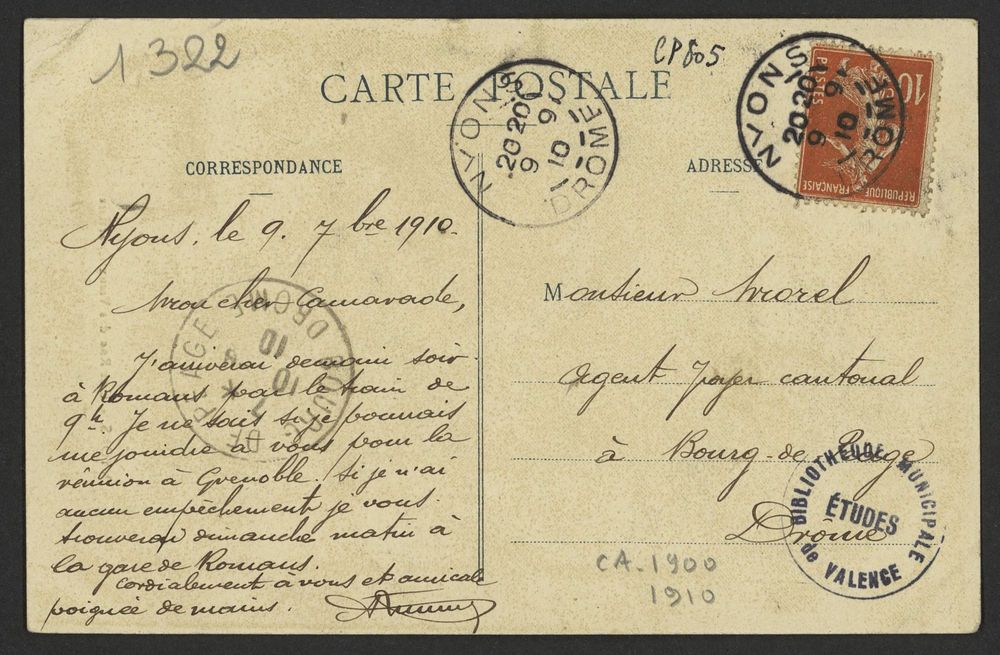 1322
CP805
CARTE POSTALE
CORRESPONDANCE
ADRESSE
NYONS
20 20
9
10 9
DRÔME
NYONS
20 20
9
10 9
DRÔME
10c
POSTES
REPUBLIQUE FRANÇAISE
Nyons, le 9. 7bre 1910.
Mon cher Camarade,
J'arriverai demain soir
à Romans par le train de
9h. Je ne sais si je pourrais
me joindre à vous pour la
réunion à Grenoble. Si je n'ai
aucun empêchement je vous
trouverai dimanche matin à
la gare de Romans.
Cordialement à vous et amicale
poignée de mains.
BOURG DE PEAGE
DROME
10
Monsieur Morel
agent voyer cantonal
à Bourg-de-Péage
Drôme
BIBLIOTHEQUE MUNICIPALE
ÉTUDES
de VALENCE
CA. 1900
1910